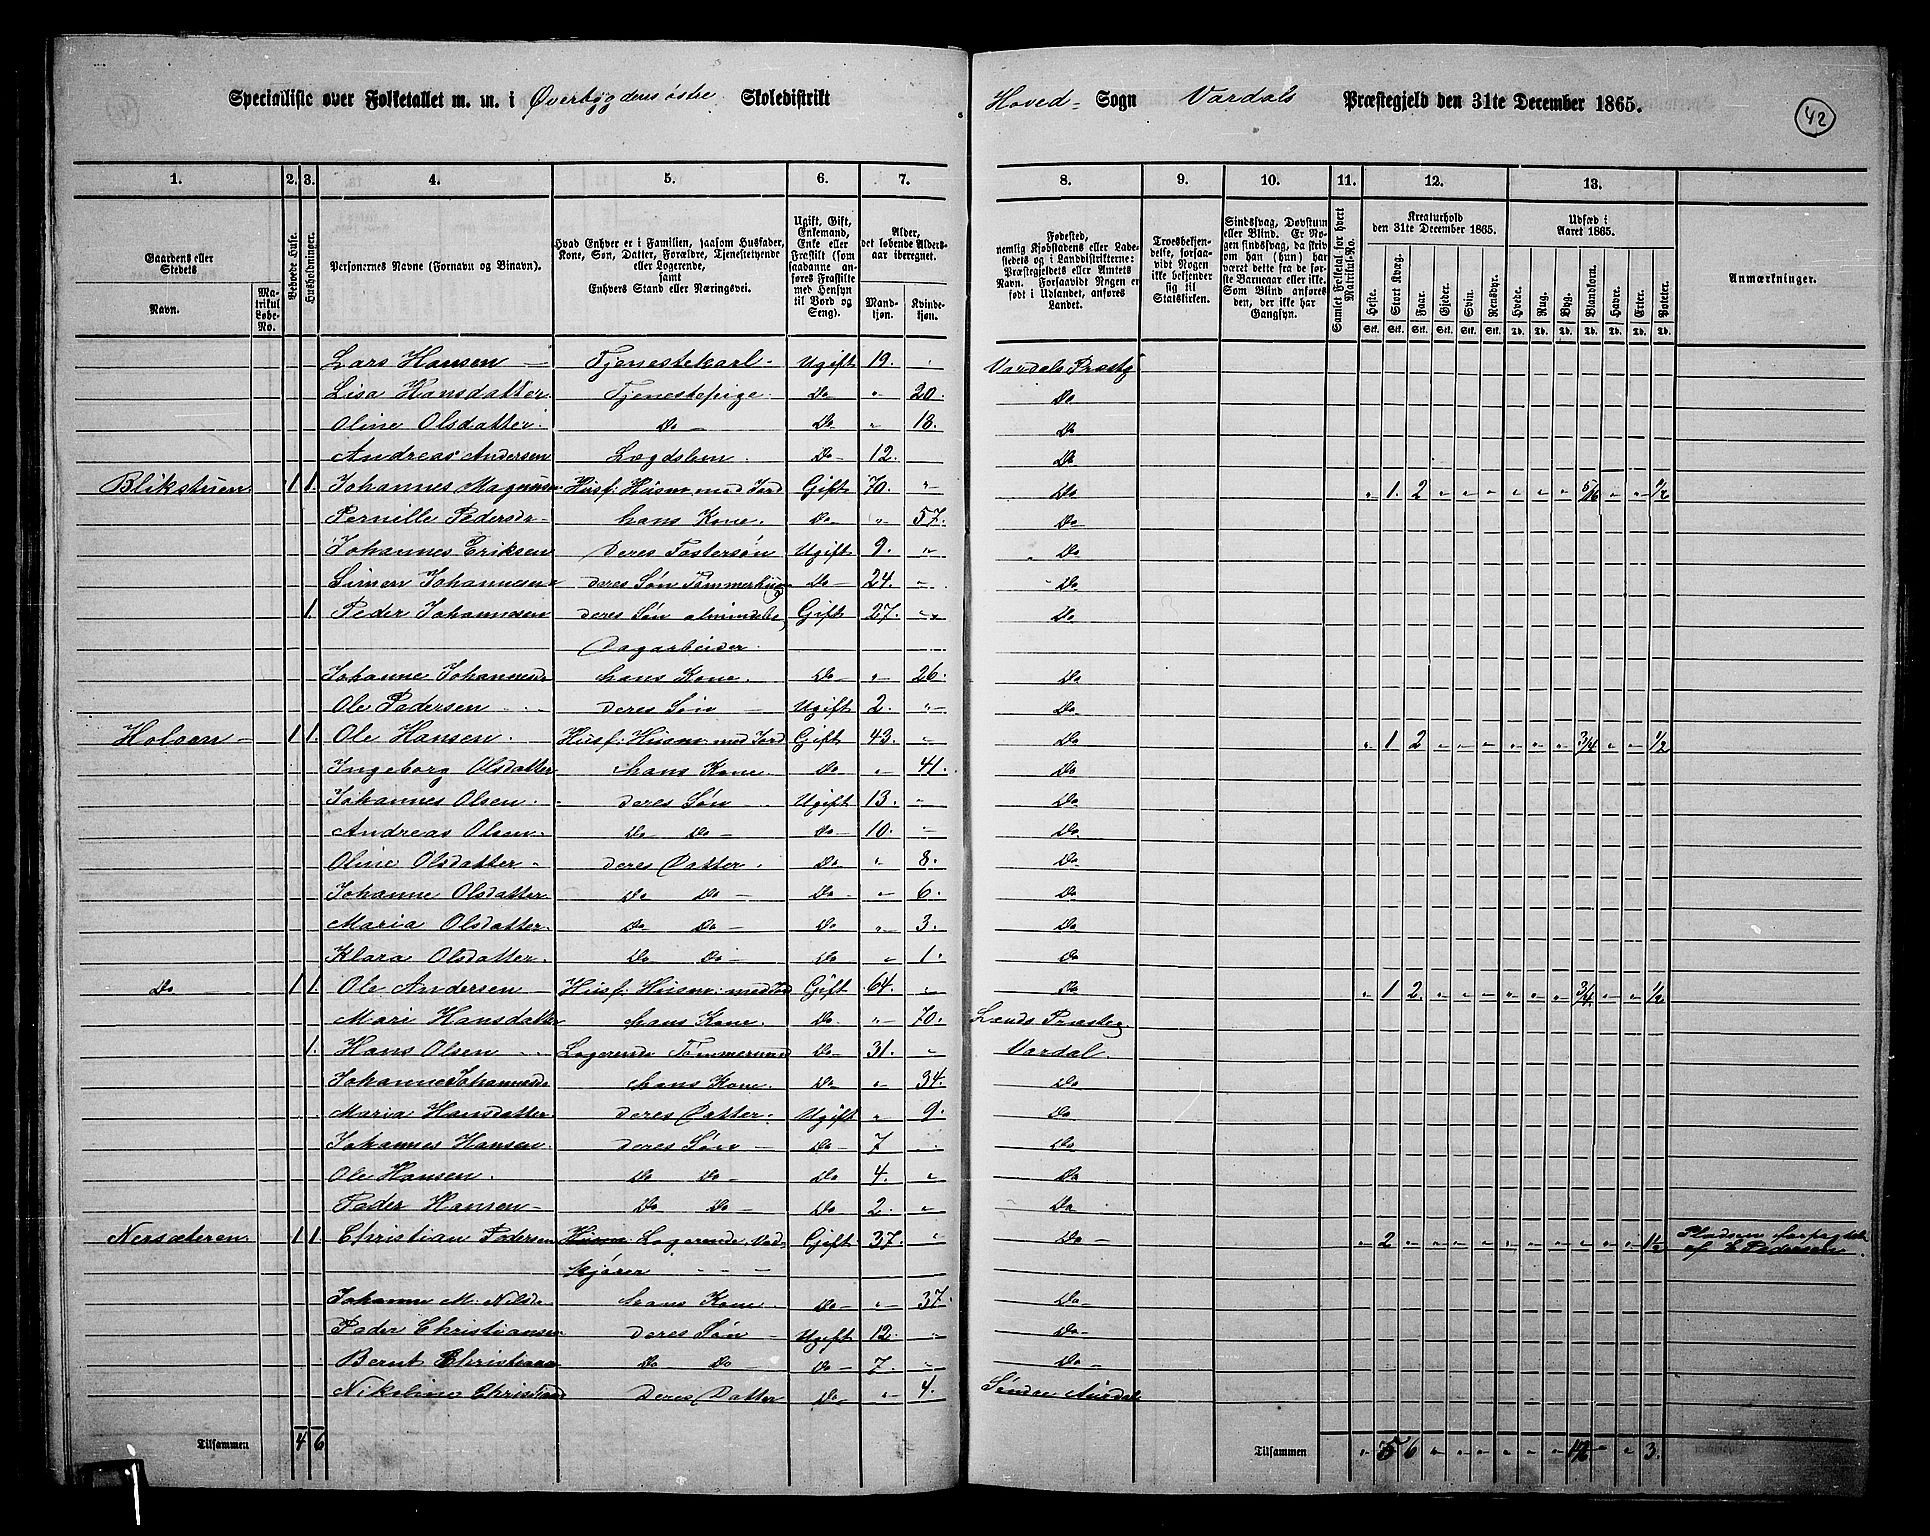 Specialliste over Folketallet m. m. i Øverbygderes østre Skoledistrikt
Hoved- Sogn Vardals Præstegjeld den 31te December 1865.
42
1. 2. 3. 4. 5. 6. 7. 8. 9. 10. 11. 12. 13.
Gaardens eller Stedets
Navn.
Matrikul Løbe-No.
Beboede Huse.
Husholdninger.
Personernes Navne (Fornavn og Binavn).
Hvad Enhver er i Familien, saasom Husfader, Kone, Søn, Datter, Forældre, Tjenestetyende eller Logerende,
samt
Enhvers Stand eller Næringsvei.
Ugift, Gift, Enkemand, Enke eller Fraskilt (som saadanne anføres Fraskilte med Hensyn til Bord og Seng).
Alder, det løbende Aldersaar iberegnet.
Mandkjøn.
Kvindekjøn.
Fødested,
nemlig Kjøbstadens eller Ladestedets og i Landdistrikterne: Præstegjeldets eller Amtets Navn. Forsaavidt Nogen er født i Udlandet, anføres Landet.
Troesbekjendelse, forsaavidt Nogen ikke bekjender sig til Statskirken.
Sindssvag, Døvstum eller Blind. Er Nogen sindssvag, da skriv om han (hun) har været dette fra de første Barneaar eller ikke. Som Blind anføres den, der ikke har Gangsyn.
Samlet Folketal for hvert Matrikul-No.
Kreaturhold den 31te December 1865.
Udsæd i Aaret 1865.
Heste. Stort Kvæg. Faar. Gjeder. Svin. Rensdyr. Hvede. Rug. Byg. Blandkorn. Havre. Erter. Poteter.
Stk. Stk. Stk. Stk. Stk. Stk. Td. Td. Td. Td. Td. Td. Td.
Anmærkninger.
Lars Hansen — Tjenestekarl. Ugift 19. " Vardals Præstg
Lisa Hansdatter Tjenestepige. Do " 20. Do
Oline Olsdatter. Do — Do " 18. Do
Andreas Andersen Lægdslem. Do 12. Do
Blikstuen 1 1. Johannes Magnusen Husf. Husm. med Jord Gift 70. " Do " 1. 2 " " " " " " 5/6 " " 1/2
Pernille Pedersd. hans Kone. Do " 57. Do
Johannes Eriksen Deres Fostersøn Ugift 9. " Do
Simen Johannesen deres Søn Tømmerhug Do 24. " Do
1. Peder Johannesen deres Søn almindelig Gift 27. " Do
Dagarbeider.
Johanne Johannesd. hans Kone. Do " 26. Do
Ole Pedersen deres Søn Ugift 2. " Do
Holoen 1 1. Ole Hansen. Husf. Husm. med Jord Gift 43. " Do " 1 2 " " " " " " 3/4 " " 1/2
Ingeborg Olsdatter hans Kone. Do " 41. Do
Johannes Olsen. deres Søn Ugift 13. " Do
Andreas Olsen. Do Do — Do 10. " Do
Oline Olsdatter deres Datter. Do " 8. Do
Johanne Olsdatter Do Do — Do " 6. Do
Maria Olsdatter. Do Do — Do " 3. Do
Klara Olsdatter. Do Do — Do " 1. Do
Do 1 1. Ole Andersen Husf. Husm. med Jord Gift 64. " Do " 1 2. " " " " " " 3/4 " " 1/2
Mari Hansdatter hans Kone. Do " 70. Lands Præsteg.
1. Hans Olsen Logerende Tømmermand Do 31. " Vardal.
Johanne Johannesd. hans Kone. Do " 34. Do
Maria Hansdatter deres Datter. Ugift " 9. Do
Johannes Hansen. deres Søn — Do 7 Do
Ole Hansen. Do Do — Do 4. " Do
Peder Hansen Do Do — Do 2. " Do
Nersæteren 1 1. Christian Pedersen Husm. Logerende, Ved- Gift 37. " Do " 2 " " " " " " " " " 1 1/2 Pladsen forpagtet
kjører af C Pedersen
Johanne M. Nilsd. hans Kone. Do " 37. Do
Peder Christiansen deres Søn Ugift 12. " Do
Bernt Christians Do Do — Do 7. " Do
Nikoline Christiansd Deres Datter Do " 4. Søndre Aurdal
Tilsammen 4 6 Tilsammen " 5 6 " " " " " " " " 3.